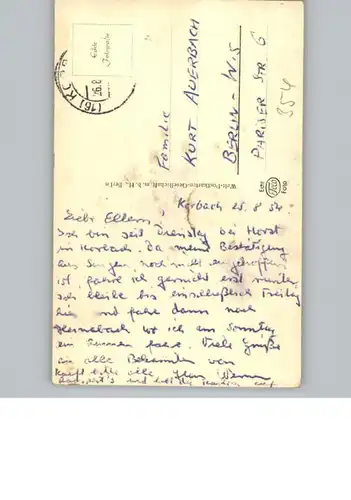 Echte
Fotografie
(16) KO
26.8
Familie
KURT AUERBACH
BERLIN - W. 15
PARISER STR 6
354
Welt-Postkarten-Gesellschaft m. b. H., Berlin
Echt Foto
Korbach 25.8.54
Liebe Eltern,
Ich bin seit Dienstag bei Horst
in Korbach. Da meine Bestätigung
aus Singen, noch nicht eingetroffen
ist, fahre ich garnicht erst runter
Ich bleibe bis einschließlich Freitag
hier und fahre dann nach
wo ich am Sonntag
fahre. Viele Grüße
an alle Bekannten von
alle
und